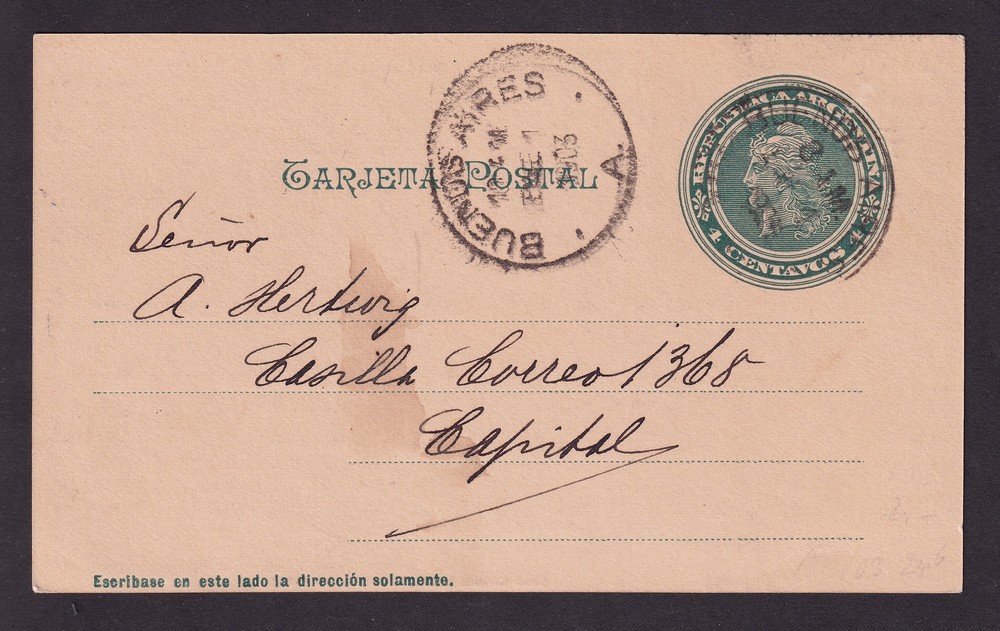 TARJETA POSTAL
BUENOS AIRES
ENE 1
1903
A.
REPUBLICA ARGENTINA
4 CENTAVOS 4
BUENOS
Señor
A. Hertwig
Casilla Correo 1368
Capital
Escribase en este lado la dirección solamente.